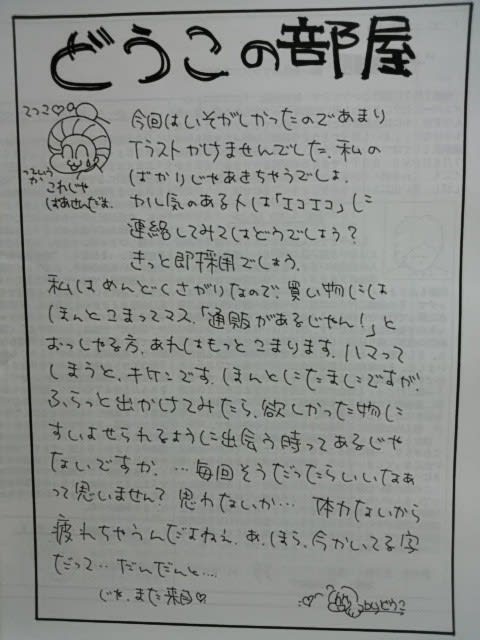 どうこの部屋
てつこ♡
つっしょうかい
これじゃ
ばあさんだよ。
今回はいそがしかったのであまり
イラストかけませんでした。私の
ばかりじゃあきちゃうでしょ。
ヤル気のある人は「エコエコ」に
連絡してみてはどうでしょう?
きっと即採用でしょう。
私はめんどくさがりなので、買い物には
ほんとこまってマス。「通販があるじゃん!」と
おっしゃる方、あれはもっとこまります。ハマって
しまうと、キケンです。ほんとにたまにですが、
ふらっと出かけてみたら、欲しかった物に
すいよせられるように出会う時ってあるじゃ
ないですか。…毎回そうだったらいいなぁ
って思いません?思わないか… 体力ないから
疲れちゃうんだよねぇ。あ、ほら、今かいてる字
だって…だんだんと…。
じゃ、また来月♡
byどうこ